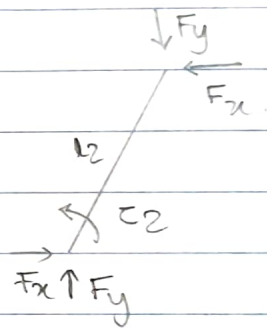 Fy
Fx
l2
τ2
Fx Fy